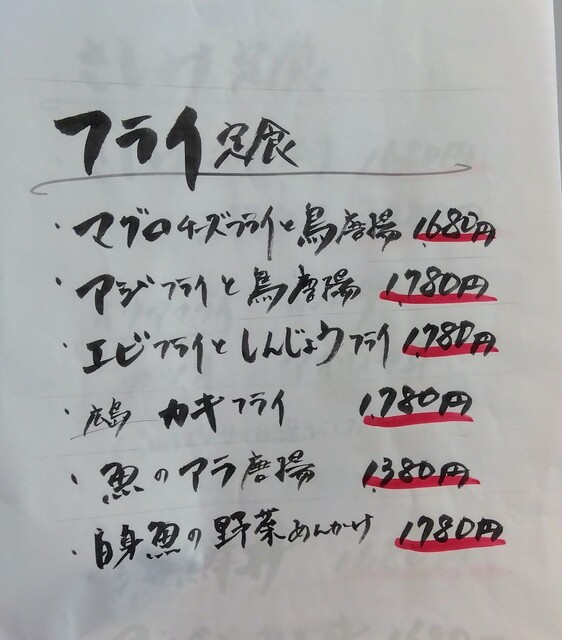 フライ定食
・マグロチーズフライと鳥唐揚 1,680円
・アジフライと鳥唐揚 1,780円
・エビフライとしんじょうフライ 1,780円
・広島 カキフライ 1,780円
・魚のアラ唐揚 1,380円
・白身魚の野菜あんかけ 1,780円